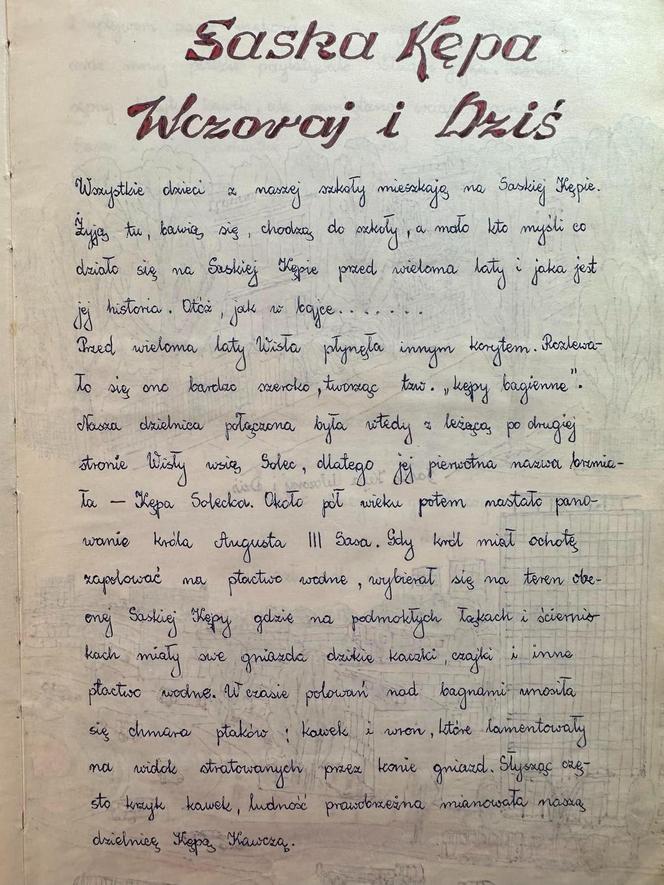 Saska Kępa
Wczoraj i Dziś
Wszystkie dzieci z naszej szkoły mieszkają na Saskiej Kępie.
Żyją tu, bawią się, chodzą do szkoły, a mało kto myśli co
działo się na Saskiej Kępie przed wieloma laty i jaka jest
jej historia. Otóż, jak w bajce........
Przed wieloma laty Wisła płynęła innym korytem. Rozlewa-
ło się ono bardzo szeroko, tworząc tzw. „kępy bagienne".
Nasza dzielnica połączona była wtedy z leżącą po drugiej
stronie Wisły wsią Solec, dlatego jej pierwotna nazwa brzmia-
ła — Kępa Solecka. Około pół wieku potem nastało pano-
wanie króla Augusta III Sasa. Gdy król miał ochotę
zapolować na ptactwo wodne, wybierał się na teren obe-
cnej Saskiej Kępy gdzie na podmokłych łąkach i ściernis-
kach miały swe gniazda dzikie kaczki, czajki i inne
ptactwo wodne. W czasie polowań nad bagnami unosiła
się chmara ptaków: kawek i wron, które lamentowały
na widok stratowanych przez konie gniazd. Słysząc czę-
sto krzyk kawek, ludność prawobrzeżna mianowała naszą
dzielnicę Kępą Kawczą.